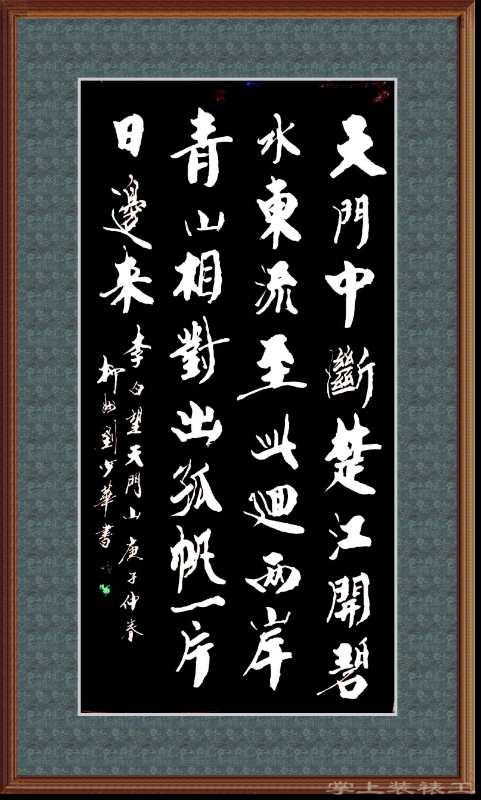 天門中斷楚江開碧
水東流至此迴兩岸
青山相對出孤帆一片
日邊来
李白望天門山庚子仲春
柳州劉少華書
掌上装裱工